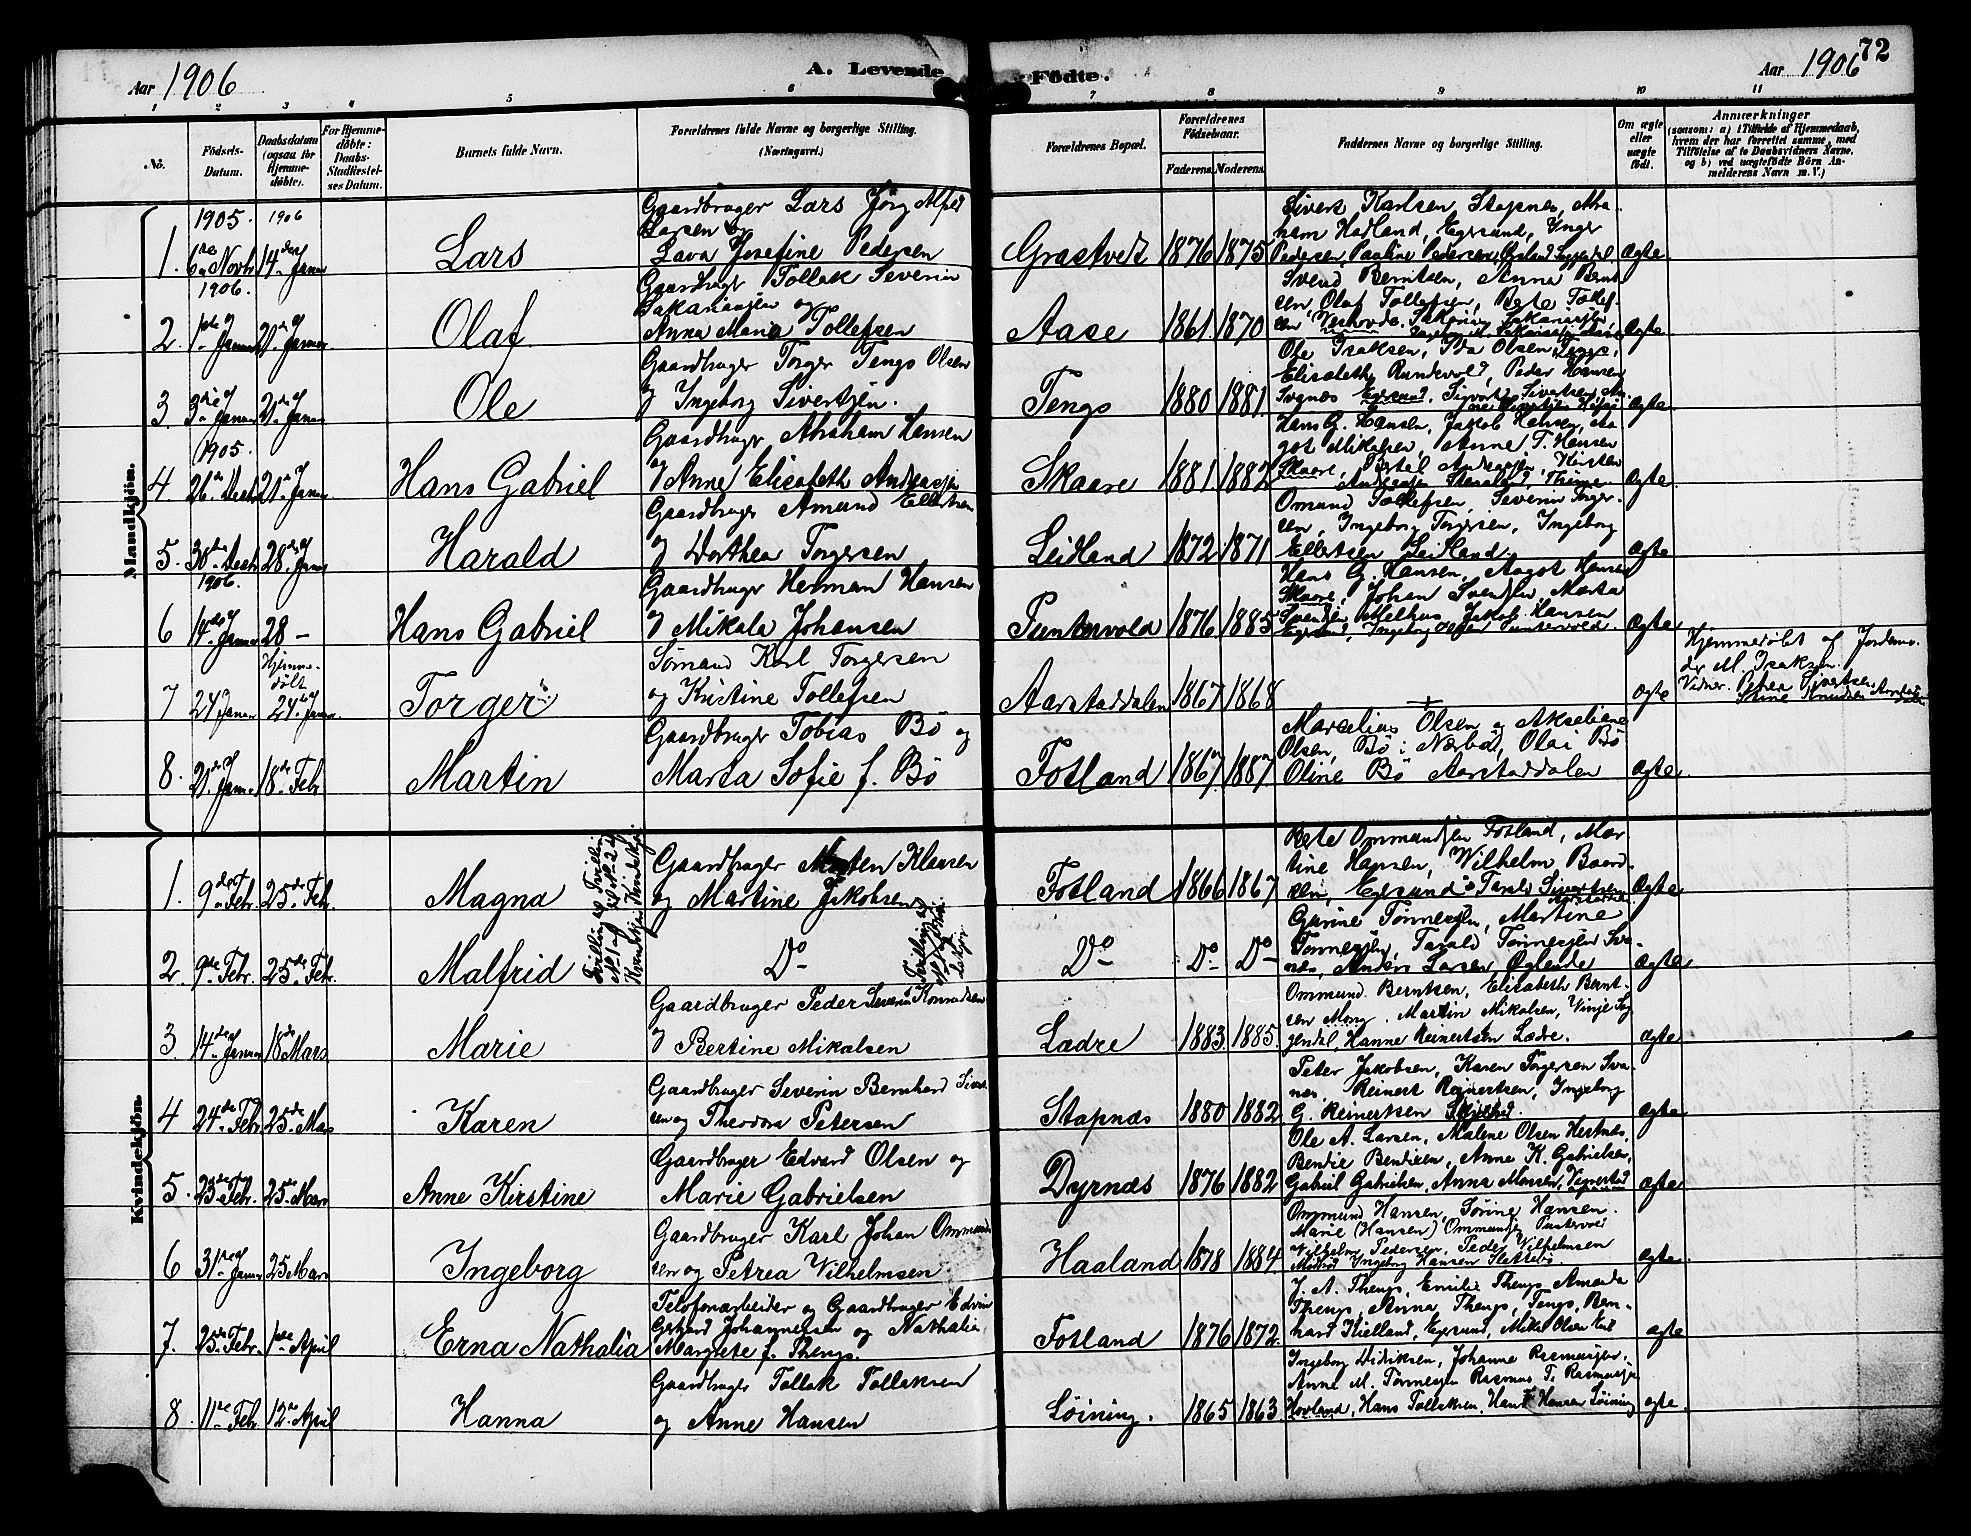 Aar 1906
A. Levende Födte.
Aar 1906
72
1 2 3 4 5 6 7 8 9 10 11
No.
Födsels-Datum.
Daabsdatum (ogsaa for Hjemmedöbte).
For Hjemmedöbte: Daabs-Stadfæstelses Datum.
Barnets fulde Navn.
Forældrenes fulde Navne og borgerlige Stilling.
(Næringsvei.)
Forældrenes Bopæl.
Forældrenes Födselsaar.
Faderens. Moderens.
Faddernes Navne og borgerlige Stilling.
Om ægte eller uægte födt.
Anmærkninger
(saasom: a) i Tilfælde af Hjemmedaab, hvem der har forrettet samme, med Tilföielse af to Daabsvidners Navne, og b) ved uægtefödte Börn Anmelderens Navn m. V.)
Mandkjön.
1905. 1906
1. 6te Novbr 14de Januar Lars
Gaardbruger Lars Jörg Alfred
Larsen og
Lava Josefine Pedersen
Grastveit 1876 1875
Sivert Karlsen, Stapnes, Abra
ham Hadland, Egersund, Inger
Pedersen, Pauline Pedersen, Ægte
1906.
2. 1ste Januar 21de Januar Olaf
Gaardbrugr Tollak Severin
Sakariassen og
Anna Maria Tollefsen
Aase 1861. 1870
Svend Berntsen, Anna Bernt
sen, Olaf Tollefsen, Berte Tollef-
sen Ægte
3. 3die Januar 21de Januar Ole
Gaardbruger Torger Tengs Olsen
og Ingeborg Sivertsen.
Tengs 1880 1881.
Ole Isaksen, Ida Olsen, Tengs,
Elisabeth Rundevold, Peder Hansen
Svanæs Egersund, Sigvart Sivertsen Ægte
1905.
4. 26de Decbr 21de Januar Hans Gabriel
Gaardbruger Abraham Hansen
og Anne Elisabeth Andreassen
Skaare 1881 1882
Hans G. Hansen, Jakob Hansen, Aa
got Mikalsen, Anne T. Hansen
Skaare, Bertel Andreassen, Kirsten Ægte
5. 30de Decbr 28de Januar Harald
Gaardbruger Amund Ellertsen
og Dorthea Torgersen
Leidland 1872 1871
Omund Tollefsen, Severin Torger-
sen, Ingeborg Torgersen, Ingeborg
Ellertsen Leidland. Ægte
1906.
6 14de Januar 28 – Hans Gabriel
Gaardbruger Herman Hansen
og Mikala Johansen
Puntervold 1876 1885
Hans G. Hansen, Aagot Hansen
Skaare, Johan Svendsen, Marta
Svendsen Melhus, Jakob Hansen
Egersund, Ingeborg Olsen Puntervold. Ægte
7 24 Januar Hjemmedöbt 24de Januar Torger
Sömand Karl Torgersen
og Kristine Tollefsen
Aarstaddalen 1867 1868 Ægte
Hjemmedöbt af Jordemo-
der M. Isaksen.
Vidner. Petrea Sivertsen,
Stine Knudsen Aarstad-
dalen
8. 21de Januar 18de Febr. Martin
Gaardbruger Tobias Bö og
Marta Sofie f. Bö
Fotland 1867. 1887.
Marselius Olsen og Akseliane
Olsen, Bö i Nærbö, Olai Bö
Oline Bö Aarstaddalen Ægte
Kvindekjön.
1. 9de Febr. 25de Febr. Magna
Tvilling
Gaardbruger Morten Klausen
og Martine Jakobsen
Fotland 1866 1867
Berte Ommundsen Fotland, Mar
tine Hansen, Wilhelm Baard-
sen, Egersund, Tarald Sivertsen Ægte
2. 9de Febr. 25de Febr. Malfrid
Tvilling af
Do
Do Do Do
Gurine Tönnesen, Martine
Tönnesen, Tarald Tönnesen Sva-
næs, Anders Larsen, Eglende Ægte
3 14de Januar 18de Mars Marie
Gaardbruger Peder Severin Konradsen
og Bertine Mikalsen
Lædre 1883 1885.
Ommund Berntsen, Elisabeth Bernt-
sen Mong. Martin Mikalsen, Vinje Sog
gendal, Hanne Reinertsen Lædre. Ægte
4 24de Febr. 25de Mars Karen
Gaardbruger Severin Bernhard Sivert
sen og Theodora Petersen
Stapnæs 1880 1882
Peter Jakobsen, Karen Torgersen Sva-
næs, Reinert Reinertsen, Ingeborg
G. Reinertsen Ægte
5. 23de Febr. 25de Mars Anne Kirstine
Gaardbruger Edvard Olsen og
Marie Gabrielsen
Dyrnæs 1876 1882
Ole A. Larsen, Malene Olsen Hestnæs,
Bendie Bendixen, Anne K. Gabrielsen,
Gabriel Gabrielsen, Anna Monsen, Vigrestad Ægte
6 31te Januar 25 Mars Ingeborg
Gaardbruger Karl Johan Ommund
sen og Petrea Vilhelmsen
Haaland 1878 1884.
Ommund Hansen, Sörine Hansen.
Marie (Hansen) Ommundsen Puntervold
Vilhelm Pedersen, Peder Vilhelmsen
Midbröd, Ingeborg Hansen Slettebö. Ægte
7. 25de Febr. 1ste April Erna Nathalia
Telefonarbeider og Gaardbruger Edvin
Gerhard Johannessen og Nathalia
Margrete f. Thengs.
Fotland 1876 1872.
J. A. Thengs, Emilie Thengs, Amanda
Thengs, Anna Thengs, Tengs, Bern-
hard Kielland, Egersund, Mikal Olsen Eie Ægte
8 11te Febr 12te April Hanna
Gaardbruger Tollak Tollaksen
og Anne Hansen
Löining. 1865 1863
Ingeborg Didriksen, Johanne Rasmussen.
Anne M. Tönnesen Rasmus T. Rasmussen
Hovland, Hans Tollaksen, Hans Hansen Löining Ægte.